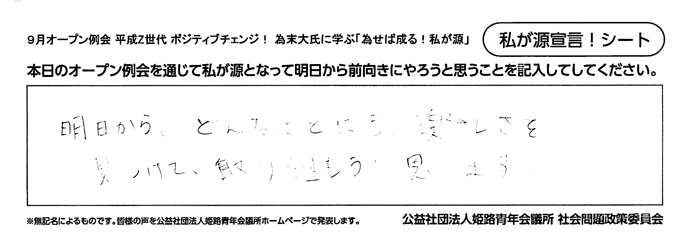 9月オープン例会 平成Z世代 ポジティブチェンジ！ 為末大氏に学ぶ「為せば成る！私が源」
私が源宣言！シート
本日のオープン例会を通じて私が源となって明日から前向きにやろうと思うことを記入してしてください。
明日から、どんなことにも、楽しさを
見つけて、取り組もうと思います
※無記名によるものです。皆様の声を公益社団法人姫路青年会議所ホームページで発表します。
公益社団法人姫路青年会議所 社会問題政策委員会